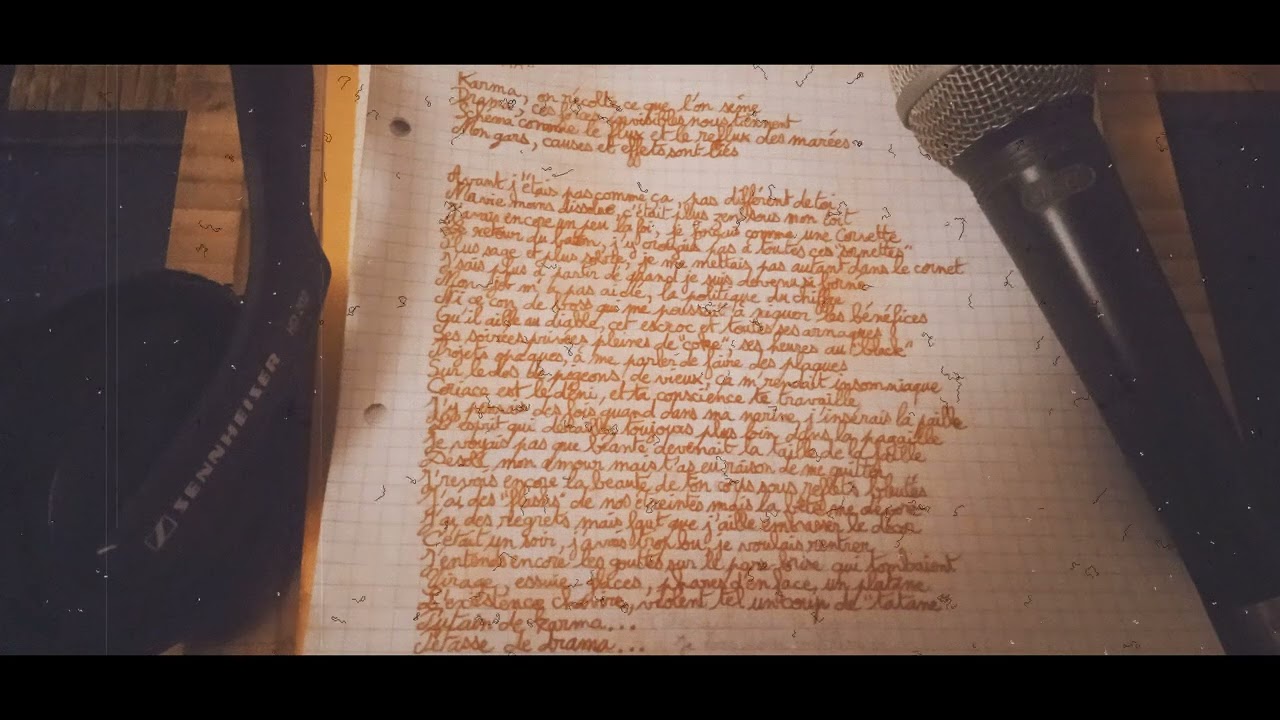 Karma, on récolte ce que l'on sème
Drama, ces liens invisibles nous tiennent
Schéma comme le flux et le reflux des marées
Mon gars, causes et effets sont liés
Avant j'étais pas comme ça, pas différent de toi
Ma vie moins dissolue, c'était plus zen sous mon toit
J'avais encore un peu la foi, je
retour du bâton, j'y croyais pas à toutes ces "sornettes"
Plus sage et plus sobre, je me mettais pas autant dans le cornet
J'sais plus à partir de quand je suis devenu si borné
Mon job m'a pas aidé, la politique du chiffre
Ni ce con de boss qui me poussait à
les bénéfices
Qu'il aille au diable, cet escroc et toutes ses arnaques
Ses soirées privées pleines de "coke", ses heures au "black"
Projets opaques, à me parler de faire des plaques
Sur le dos de pigeons de vieux, ça m'rendait insomniaque
Coriace est le déni, et ta conscience te travaille
des fois quand dans ma narine j'insérais la paille
esprit qui déraille, toujours plus loin dans la pagaille
Je voyais pas que béante devenait la taille de la faille
Désolé mon amour mais t'as eu raison de me quitter
J'revois encore la beauté de ton corps sous reflets bleutés
J'ai des "flashs" de nos étreintes mais la
me dévore
J'ai des regrets mais faut que j'aille embrasser le décor
C'était un soir, j'avais trop bu, je voulais rentrer
J'entends encore les gouttes sur le pare-brise qui tombaient
Virage, essuie-glaces, phares d'en face, un platane
L'existence chavire, violent tel un coup de "tatane"
Putain de karma...
Pétasse de drama...
SENNHEISER